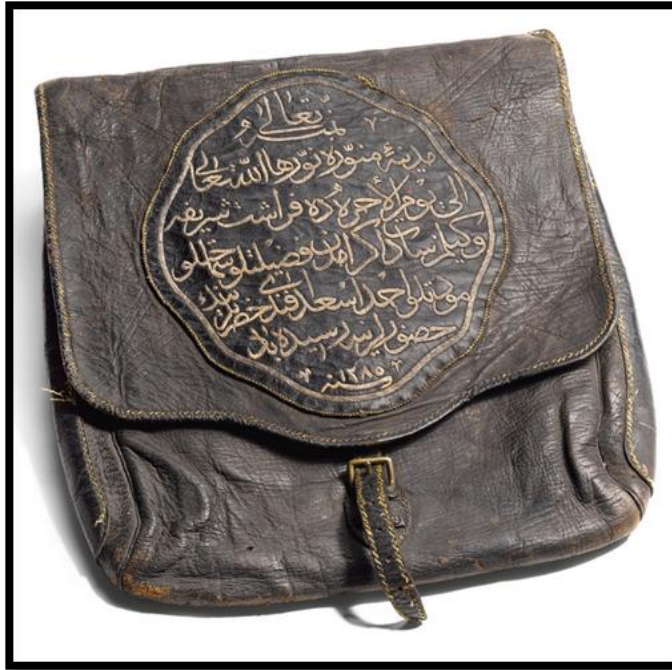 بمنه تعالى
مدينۀ منوره نورها الله تعالى
الى يوم الآخره ده فراشت شريفه
وكيلمز سعادتلو فضيلتلو
مودتلو احمد اسعد افندى حضرتلرينك
حضورلرينه رسيده باد
سنه ١٢٨٥